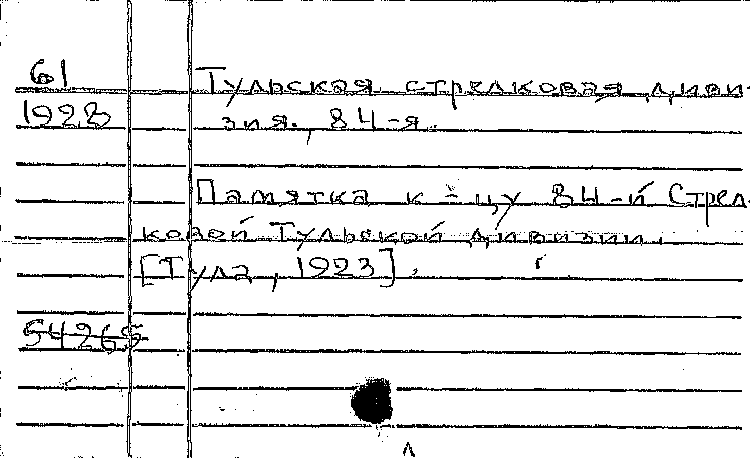 61
Тульская стрелковая диви-
1923
зия., 84-я.
Памятка к-цу 84-й Стрел-
ковой Тульской дивизии.
[Тула, 1923].
54265